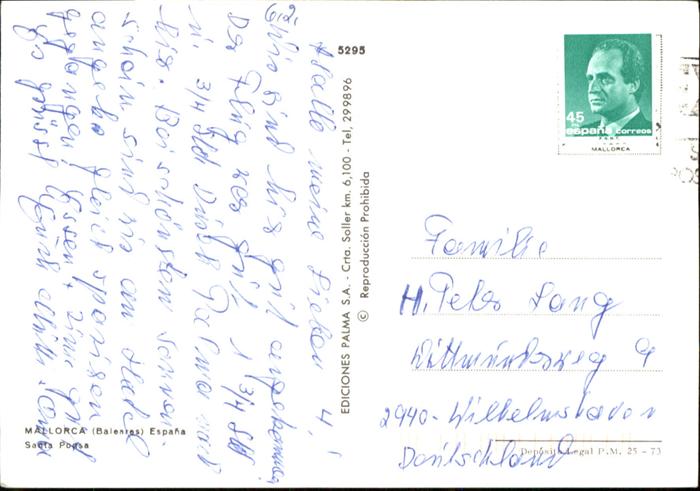 6.2.
Hallo meine Lieben 4,
Wir sind hier gut angekommen
Der Flug war gut 1 3/4 Std
u. 3/4 Std Palma nach
hier. Bei schönstem sonnen-
schein sind wir am Hotel
gleich spazieren
gegangen! Essen + Zimmer gut
Es grüsst Euch
MALLORCA (Baleares) España
Santa Ponsa
5295
EDICIONES PALMA S.A. - Crta. Soller km. 6,100 - Tel, 299896
© Reproducción Prohibida
45
españa correos
MALLORCA
Familie
H. Peter Lang
Wittmunderweg 9
2940-Wilhelmshaven
Deutschland
Depósito Legal P.M. 25 - 73